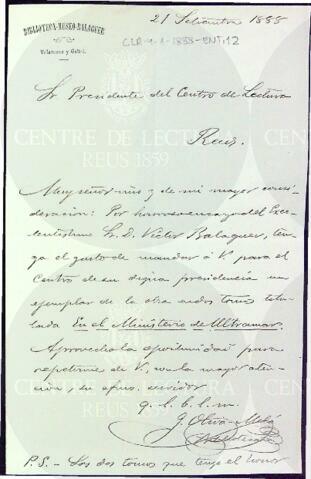 BIBLIOTECA-MUSEO-BALAGUER
Villanueva y Geltrú
21 Setiembre 1888
CLR-1-1-1888-ENT.12
Sr. Presidente del Centro de Lectura
Reus
CENTRE DE LECTURA
REUS 1859
Muy señor mio y de mi mayor consi-
deracion: Por honroso encargo del Exce-
lentisimo Sr. D. Victor Balaguer, ten-
go el gusto de mandar á V. para el
Centro de su digna presidencia un
ejemplar de la obra en dos tomos titu-
lada En el Ministerio de Ultramar.
Aprovecho la oportunidad para
repetirme de V. con la mayor aten-
cion su afmo. servidor
q. s. b. s. m.
J. Oliva y Milá
P.S. - Los dos tomos que tengo el honor